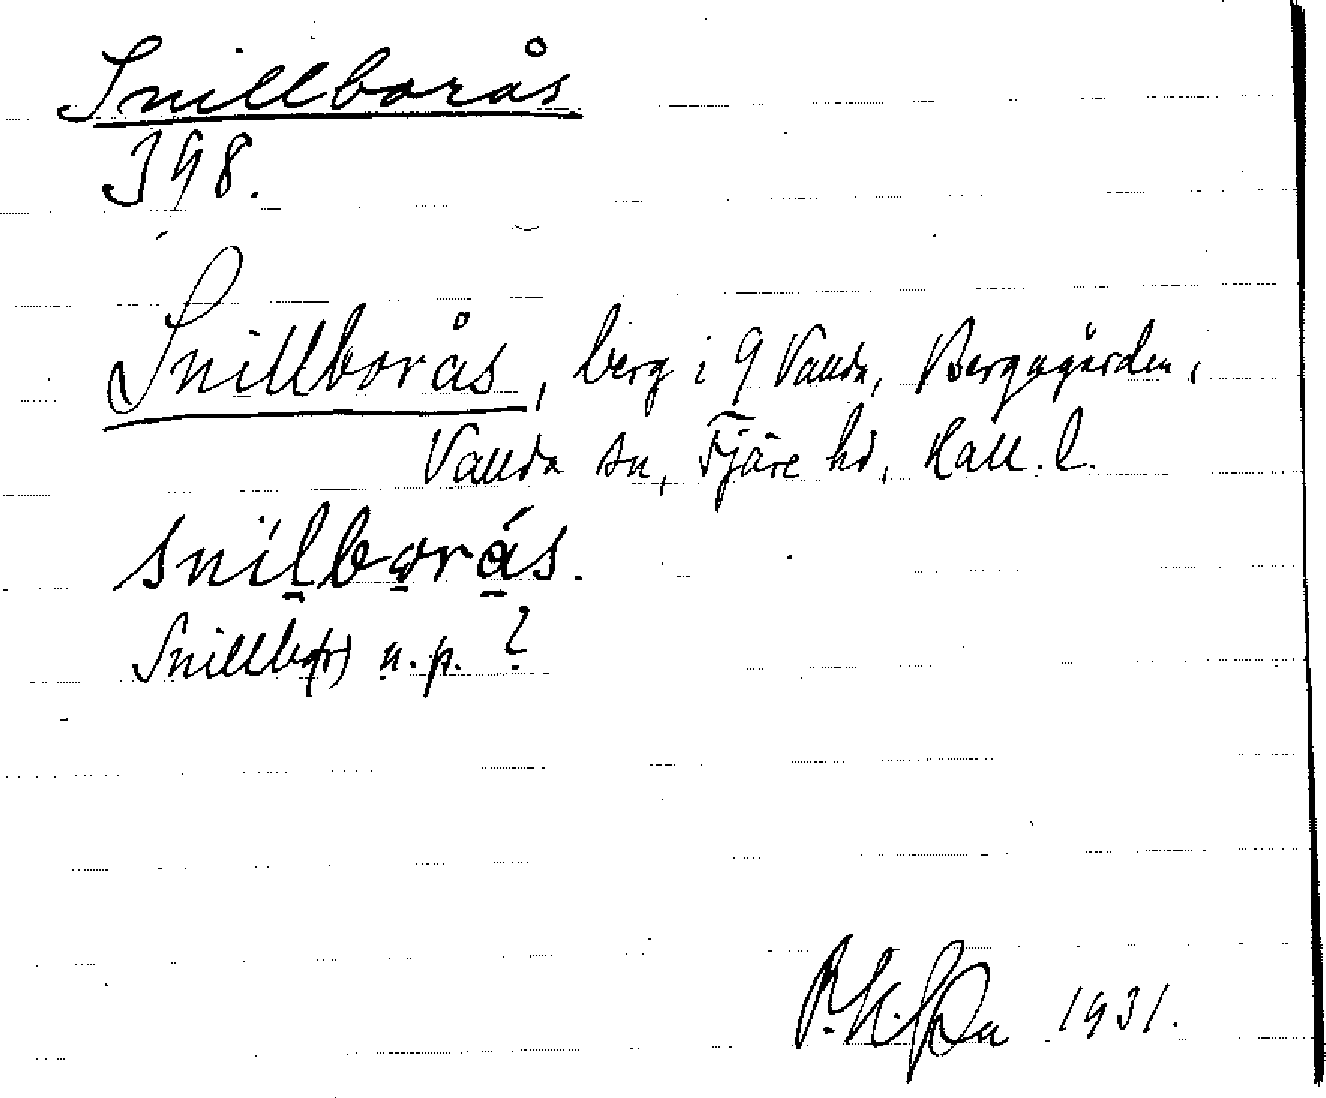 Snillborås
398.
Snillborås, berg i 9 Vallda, Bergagården,
Vallda sn, Fjäre hd, Hall. l.
snílborås.
Snillbo(r) n.p. ?
1931.